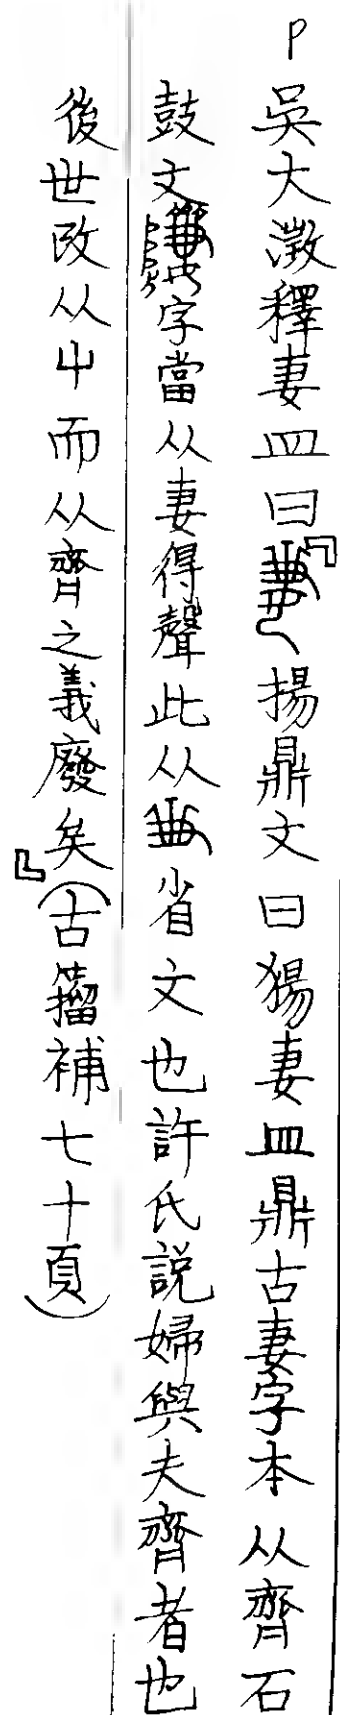 P吳大澂釋妻皿曰『揚鼎文曰猲妻皿鼎古妻字本从齊石
鼓文字當从妻得聲此从省文也許氏説婦與夫齊者也
後世改从屮而从齊之義廢矣』(古籀補七十頁)